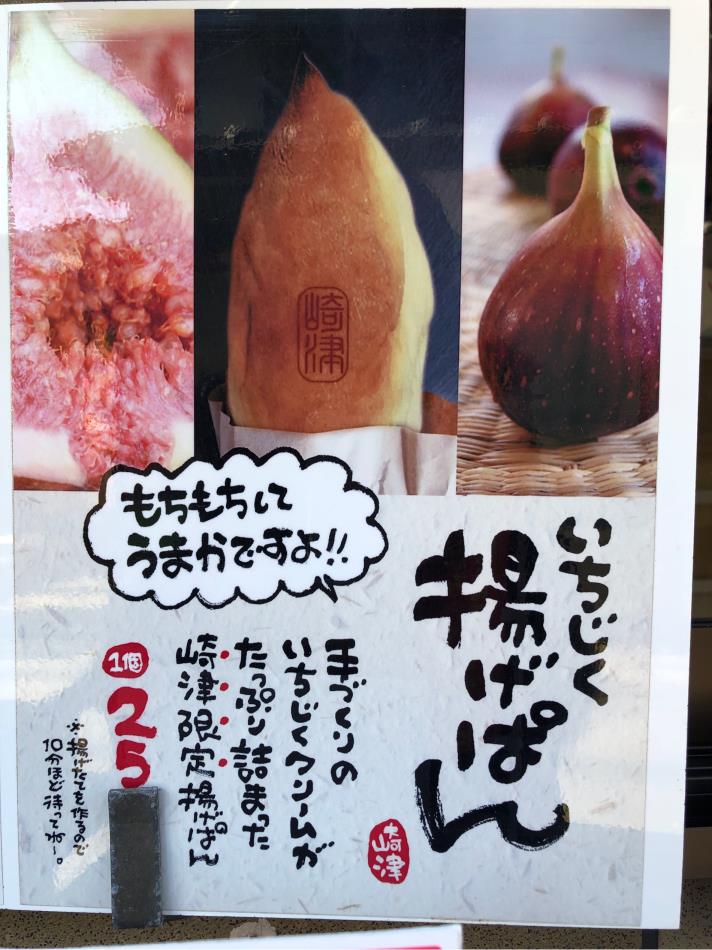 崎津
いちじく
揚げぱん
もちもちして
うまかですよ!!
手づくりの
いちじくクリームが
たっぷり詰まった
崎津限定揚げぱん
崎津
1個
25
※揚げたてを作るので
10分ほど待ってね〜。